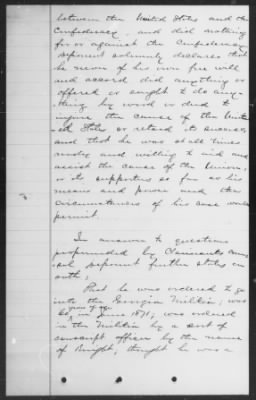 between the United States and the
Confederacy, and did nothing
for or against the Confederacy
deponent solemnly declares that
he never of his own free will
and accord did anything or
offered or sought to do any-
thing by word or deed to
injure the cause of the Unit-
ed States or retard its success,
and that he was at all times
ready and willing to aid and
assist the cause of the Union,
or its supporters so far as his
means and power and the
circumstances of his case would
permit.
In answer to questions
propounded by Claimants coun-
sel deponent further states on
oath;
That he was ordered to go
into the Georgia Militia; was
60 years of age in June 1871; was ordered
in the Militia by a sort of
conscript officer by the name
of Knight, thought he was a